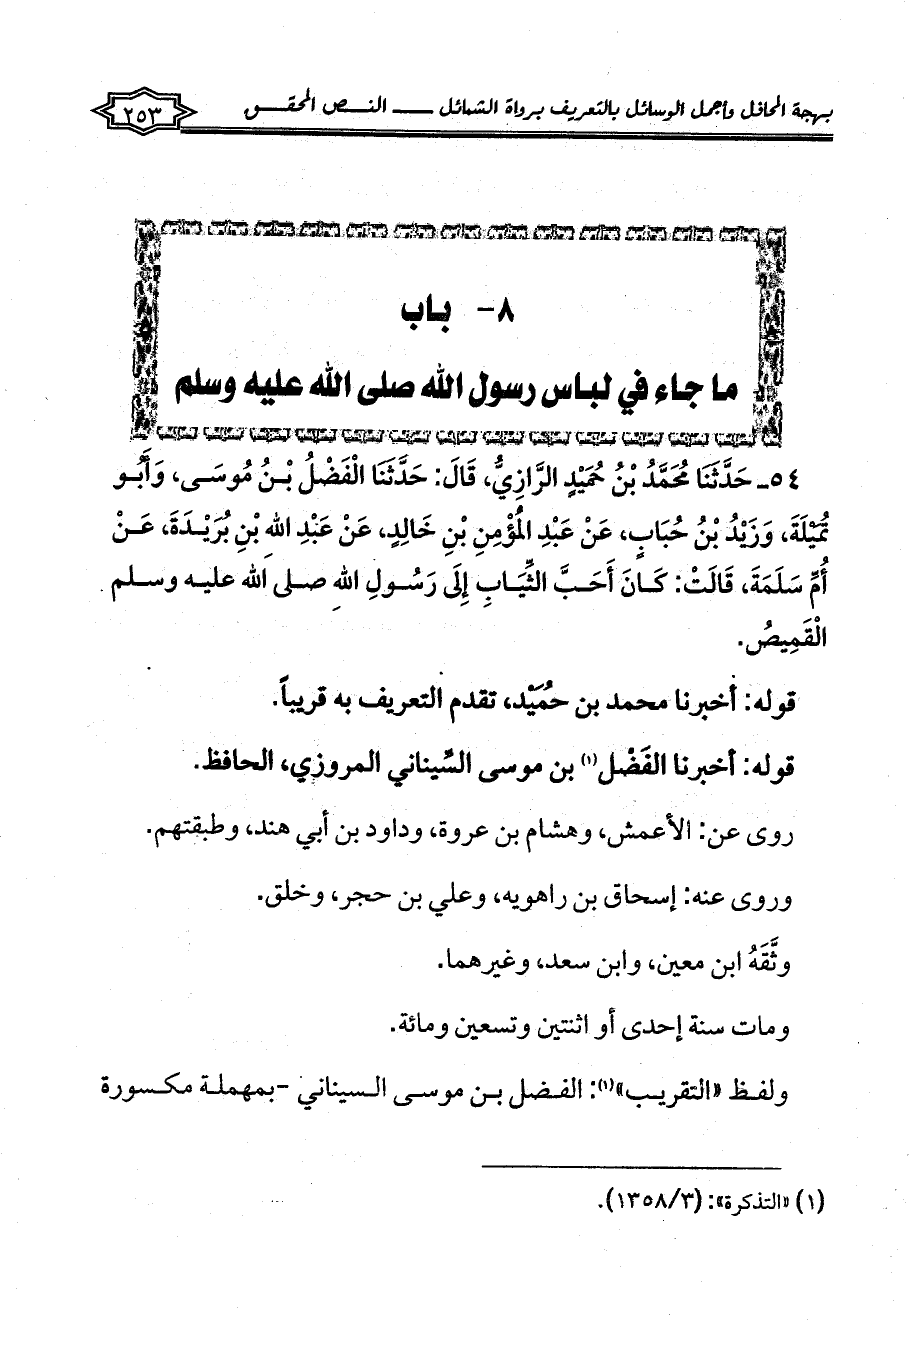 بهجة المحافل وأجمل الوسائل بالتعريف برواة الشمائل ـــ النص المحقق
٢٥٣
٨- باب
ما جاء في لباس رسول الله صلى الله عليه وسلم
٥٤ـ حَدَّثَنَا مُحَمَّدُ بْنُ حُمَيْدٍ الرَّازِيُّ، قَالَ: حَدَّثَنَا الْفَضْلُ بْنُ مُوسَى، وَأَبُو
تُمَيْلَةَ، وَزَيْدُ بْنُ حُبَابٍ، عَنْ عَبْدِ الْمُؤْمِنِ بْنِ خَالِدٍ، عَنْ عَبْدِ اللهِ بْنِ بُرَيْدَةَ، عَنْ
أُمِّ سَلَمَةَ، قَالَتْ: كَانَ أَحَبَّ الثِّيَابِ إِلَى رَسُولِ اللهِ صلى الله عليه وسلم
الْقَمِيصُ.
قوله: أخبرنا محمد بن حُمَيْد، تقدم التعريف به قريباً.
قوله: أخبرنا الفَضْل(١) بن موسى السِّيناني المروزي، الحافظ.
روى عن: الأعمش، وهشام بن عروة، وداود بن أبي هند، وطبقتهم.
وروى عنه: إسحاق بن راهويه، وعلي بن حجر، وخلق.
وثَّقَهُ ابن معين، وابن سعد، وغيرهما.
ومات سنة إحدى أو اثنتين وتسعين ومائة.
ولفظ «التقريب»(١): الفضل بن موسى السيناني -بمهملة مكسورة
(١) «التذكرة»: (١٣٥٨/٣).